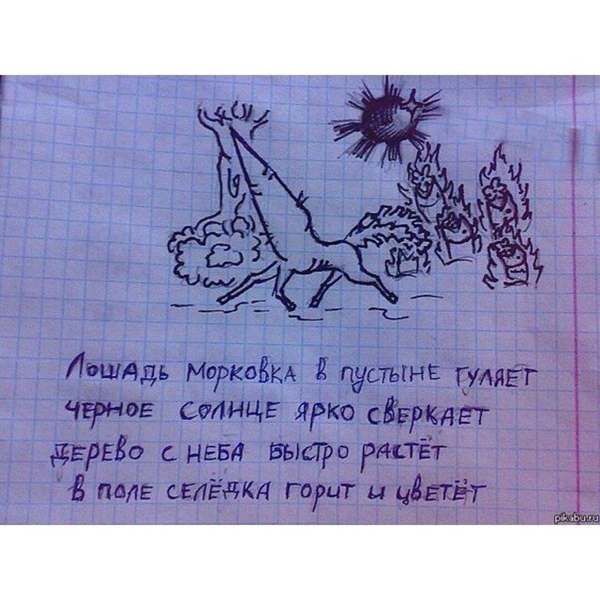 Лошадь морковка в пустыне гуляет
черное солнце ярко сверкает
дерево с неба быстро растёт
в поле селёдка горит и цветёт
pikabu.ru